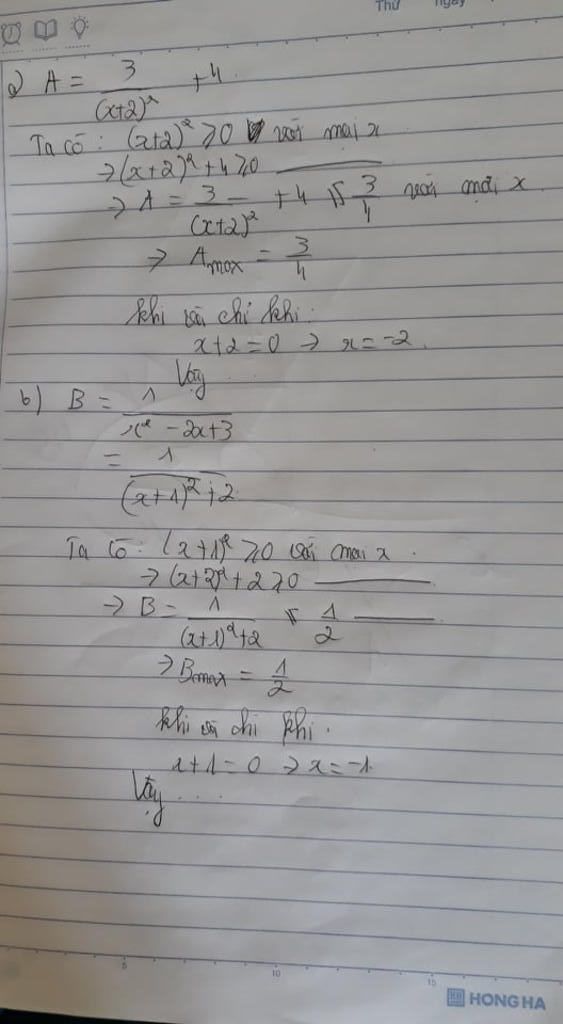 Thứ ngày
a) A = 3/(x+2)² + 4
Ta có: (x+2)² ≥ 0 với mọi x
→ (x+2)² + 4 ≥ 0 ———
→ A = 3/(x+2)² + 4 ≤ 3/4 với mọi x
→ Amax = 3/4
khi và chỉ khi.
x+2 = 0 → x = -2.
Vậy ...
b) B = 1/(x² - 2x+3)
= 1/((x+1)² + 2)
Ta có: (x+1)² ≥ 0 với mọi x.
→ (x+2)² + 2 ≥ 0 ———
→ B = 1/((x+1)²+2) ≤ 1/2 ———
→ Bmax = 1/2
khi và chỉ khi.
x+1 = 0 → x = -1.
Vậy ....
5 10 15
HONG HA